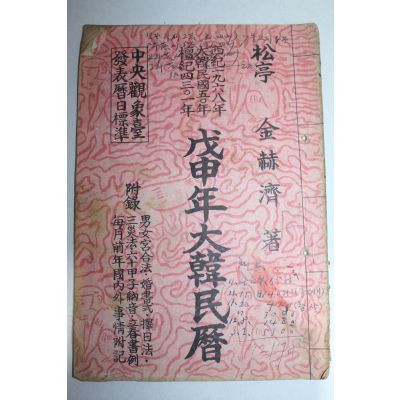 松亭 金赫濟 著
戊申年大韓民曆
西紀一九六八年
大韓民國五〇年
檀紀四三〇一年
中央觀象臺
發表曆日標準
附錄
男女宮合法·婚書式·擇日法·
三災法·六十甲子納音·立春書例
每月前年國內外事情附記